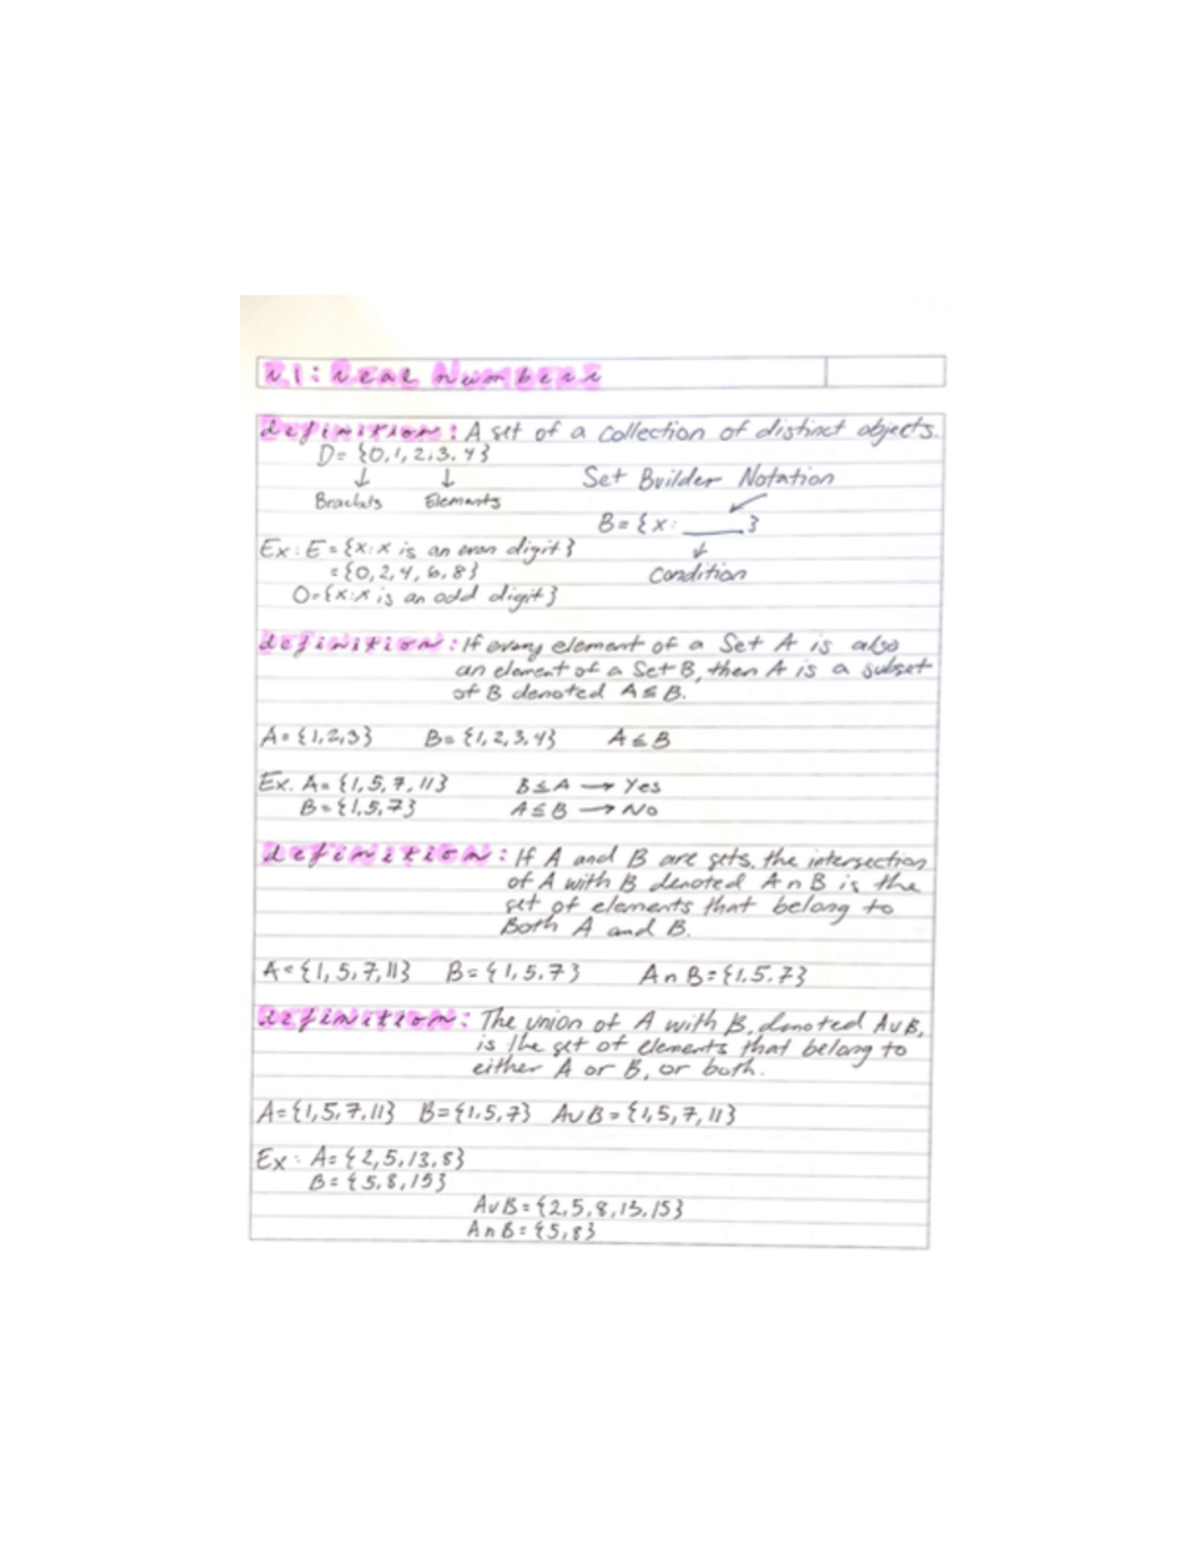 R.1: Real Numbers
Definition: A set of a collection of distinct objects.
D= {0,1,2,3,4}
↓ ↓
Brackets Elements
Set Builder Notation
B= {x: ______}
↓
Condition
Ex: E = {x:x is an even digit}
= {0,2,4,6,8}
O={x:x is an odd digit}
Definition: If every element of a Set A is also
an element of a Set B, then A is a subset
of B denoted A ⊆ B.
A = {1,2,3} B= {1,2,3,4} A ⊆ B
Ex. A= {1,5,7,11} B ⊆ A → Yes
B = {1,5,7} A ⊆ B → No
Definition: If A and B are sets, the intersection
of A with B denoted A ∩ B is the
set of elements that belong to
Both A and B.
A = {1,5,7,11} B = {1,5,7} A ∩ B = {1,5,7}
Definition: The union of A with B, denoted A∪B,
is the set of elements that belong to
either A or B, or both.
A = {1,5,7,11} B = {1,5,7} A∪B = {1,5,7,11}
Ex: A= {2,5,13,8}
B = {5,8,15}
A∪B = {2,5,8,13,15}
A ∩ B = {5,8}